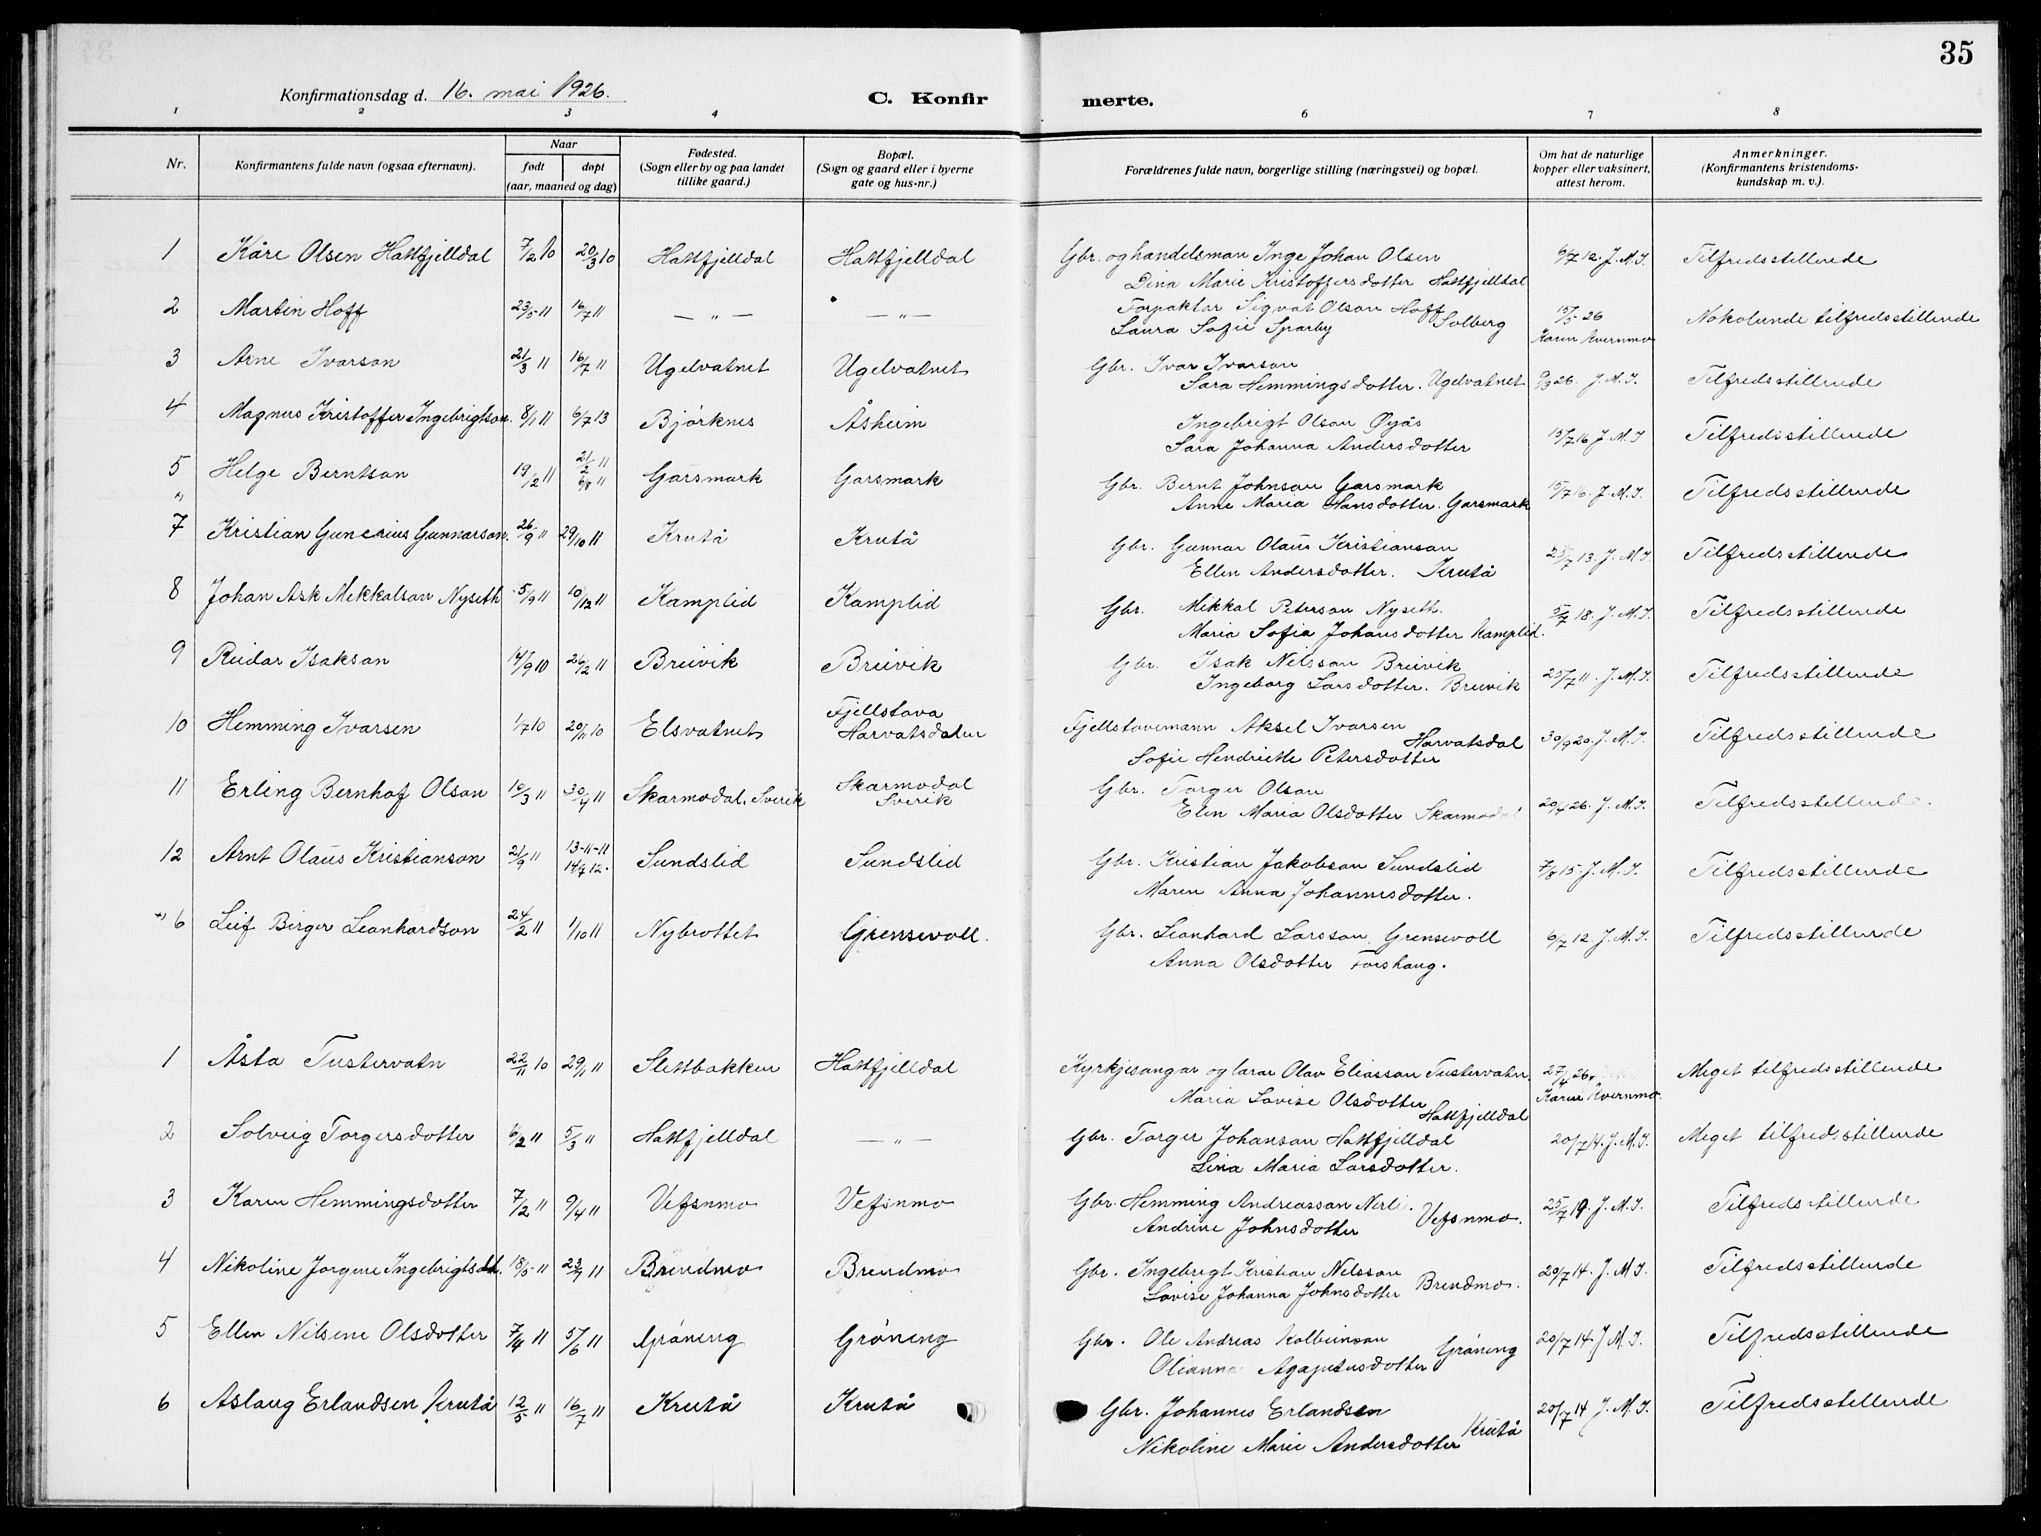 35
Konfirmationsdag d. 16. mai 1926.
C. Konfir merte.
1 2 3 4 6 7 8
Nr.
Konfirmantens fulde navn (ogsaa efternavn).
Naar
født døpt
(aar, maaned og dag)
Fødested.
(Sogn eller by og paa landet
tillike gaard.)
Bopæl.
(Sogn og gaard eller i byerne
gate og hus-nr.)
Forældrenes fulde navn, borgerlige stilling (næringsvei) og bopæl.
Om hat de naturlige
kopper eller vaksinert,
attest herom.
Anmerkninger.
(Konfirmantens kristendoms-
kundskap m. v.).
1 Kåre Olsen Hattfjelldal 7/2 10 20/3 10 Hattfjelldal Hattfjelldal Gbr. og handelsman Inge Johan Olsen 6/7 12. J. M. I. Tilfredsstillende
Dina Marie Kristoffersdotter Hattfjelldal
2 Martin Hoff 23/5 11 16/7 11 — " — — " — Forpaktar Sigvat Olson Hoff 15/5 26 Nokolunde tilfredsstillende
Laura Sofie Sparby Solberg Karen Kvernmo
3 Arne Ivarson 21/3 11 16/7 11 Ugelvatnet Ugelvatnet Gbr. Ivar Ivarson
Sara Hemmingsdotter. Ugelvatnet 9/3 26. J. M. I. Tilfredsstillende
4 Magnus Kristoffer Ingebrigtson. 8/1 11 6/7 13 Björknes Åsheim Ingebrigt Olson Øyås
Sara Johanna Andersdotter 15/7 16 J. M. I Tilfredsstillende
5 Helge Berntson 19/2 11 21/2 11 6/8 11 Garsmark Garsmark Gbr. Bernt Johnson Garsmark 15/7 16. J. M. I. Tilfredsstillende
Anne Maria Hansdotter. Garsmark
7 Kristian Gunerius Gunnarson. 26/9 11 29/10 11 Krutå Krutå Gbr. Gunnar Olaus Kristianson
Ellen Andersdotter. Krutå 25/7 13. J. M. I. Tilfredsstillende
8 Johan Ask Mekkalson Nyseth 5/9 11 10/12 11 Kamplid Kamplid Gbr. Mekkal Peterson Nyseth. 5/7 18. J. M. I. Tilfredsstillende
Maria Sofia Johansdotter Kamplid.
9 Reidar Isakson 14/9 10 26/2 11 Breivik Breivik Gbr. Isak Nilsson Breivik
Ingeborg Larsdotter. Breivik 25/7 11. J. M. I. Tilfredsstillende
10 Hemming Ivarsen 1/7 10 20/11 10 Elsvatnet Fjellstova
Harvatsdalen Fjellstovemann Aksel Ivarsen Harvatsdal 30/9 20. J. M. I. Tilfredsstillende
Sofie Hendriette Petersdotter
11 Erling Bernhof Olson 16/3 11 30/4 11 Skarmodal, Sverik Skarmodal
Sverik Gbr. Torger Olson
Elen Maria Olsdotter Skarmodal 20/4 26. J. M. I. Tilfredsstillende.
12 Arnt Olaus Kristianson 21/9 11 13-11-11
14/7 12. Sundslid Sundslid Gbr. Kristian Jakobson Sundslid 7/8 15. J. M. I. Tilfredsstillende
Maren Anna Johannesdotter.
6 Leif Birger Leonhardson 24/2 11 1/10 11 Nybrottet Grensevoll. Gbr. Leonhard Larsson Grensevoll 6/7 12. J. M. I. Tilfredsstillende
Anna Olsdotter Forshaug.
1 Åsta Tustervatn 22/11 10 29/1 11 Slettbakken Hattfjelldal Kyrkjesongar og lærar Olav Eliasson Tustervatn. 27/4 26. Meget tilfredsstillende
Maria Lovise Olsdotter Hattfjelldal Karen Kvernmo.
2 Solveig Torgersdotter 6/2 11 5/3 11 Hattfjelldal — " — Gbr. Torger Johanson Hattfjelldal 20/7 14. J. M. I. Meget tilfredsstillende
Lina Maria Larsdotter.
3 Karen Hemmingsdotter 7/2 11 9/4 11 Vefsnmo Vefsnmo Gbr. Hemming Andreasson Nerli. Vefsnmo. 25/7 19. J. M. I. Tilfredsstillende
Andrine Johnsdotter
4 Nikoline Jorgine Ingebrigtsdt. 18/5 11 23/7 11 Brendmo Brendmo Gbr. Ingebrigt Kristian Nilsson Brendmo. 20/7 14. J. M. I. Tilfredsstillende
Lovise Johanna Johnsdotter
5 Ellen Nilsine Olsdotter 7/4 11 5/6 11 Gröning Gröning Gbr. Ole Andreas Kolbeinson Gröning 20/7 14 J. M. I. Tilfredsstillende
Oleanna Agapetusdotter
6 Aslaug Erlandsen Krutå 12/5 11 16/7 11 Krutå Krutå Gbr. Johannes Erlandsen Krutå 20/7 14 J. M. I. Tilfredsstillende
Nikoline Marie Andersdotter